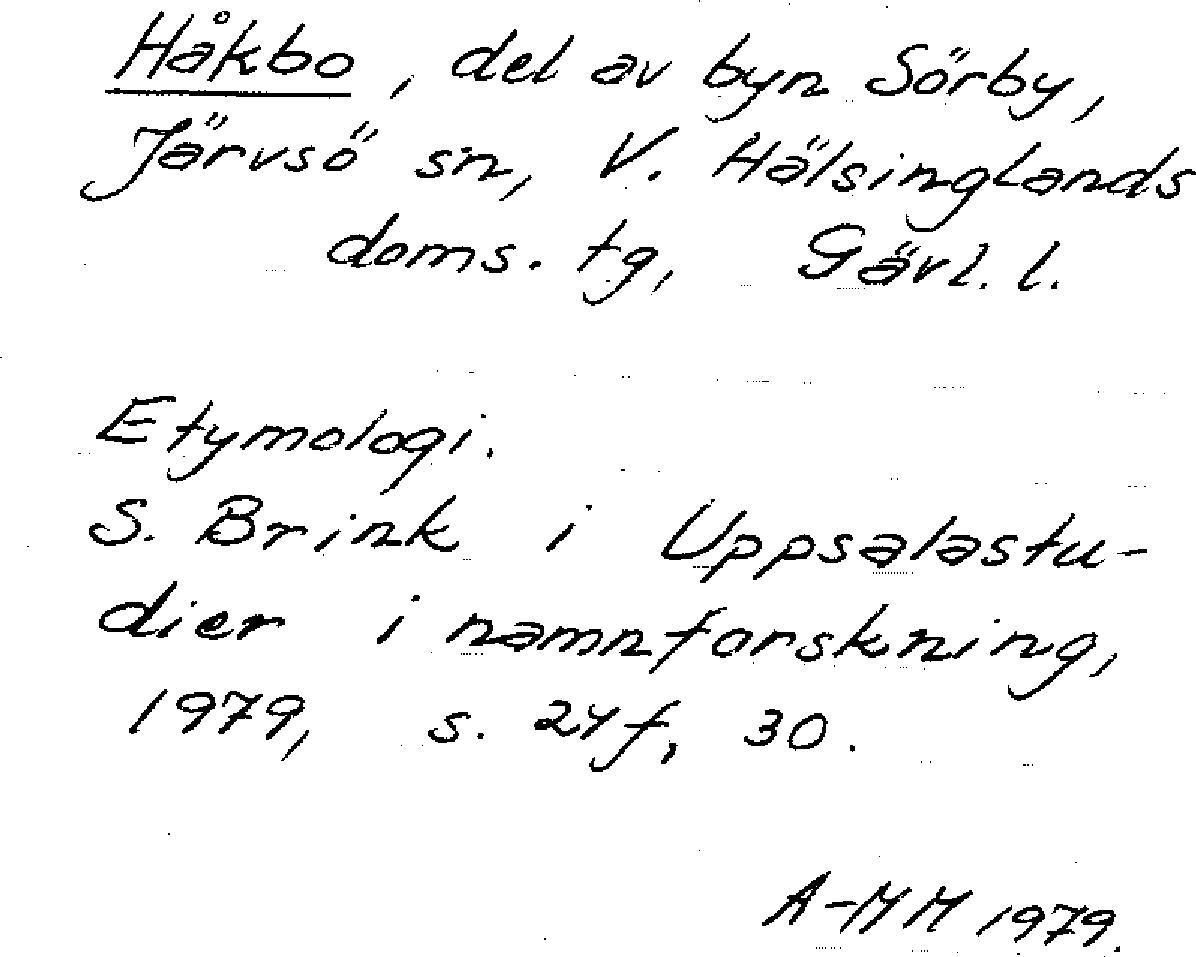 Håkbo, del av byn Sörby,
Järvsö sn, V. Hälsinglands
doms. tg, Gävl. l.
Etymologi.
S. Brink i Uppsalastu-
dier i namnforskning,
1979, s. 24f, 30.
A-MM 1979.